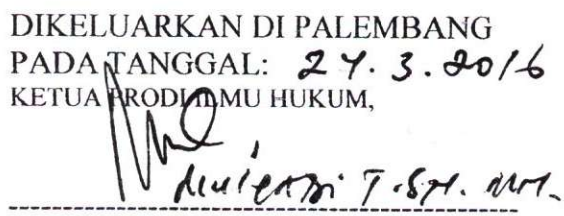 DIKELUARKAN DI PALEMBANG
PADA TANGGAL: 24.3.2016
KETUA PRODI ILMU HUKUM,